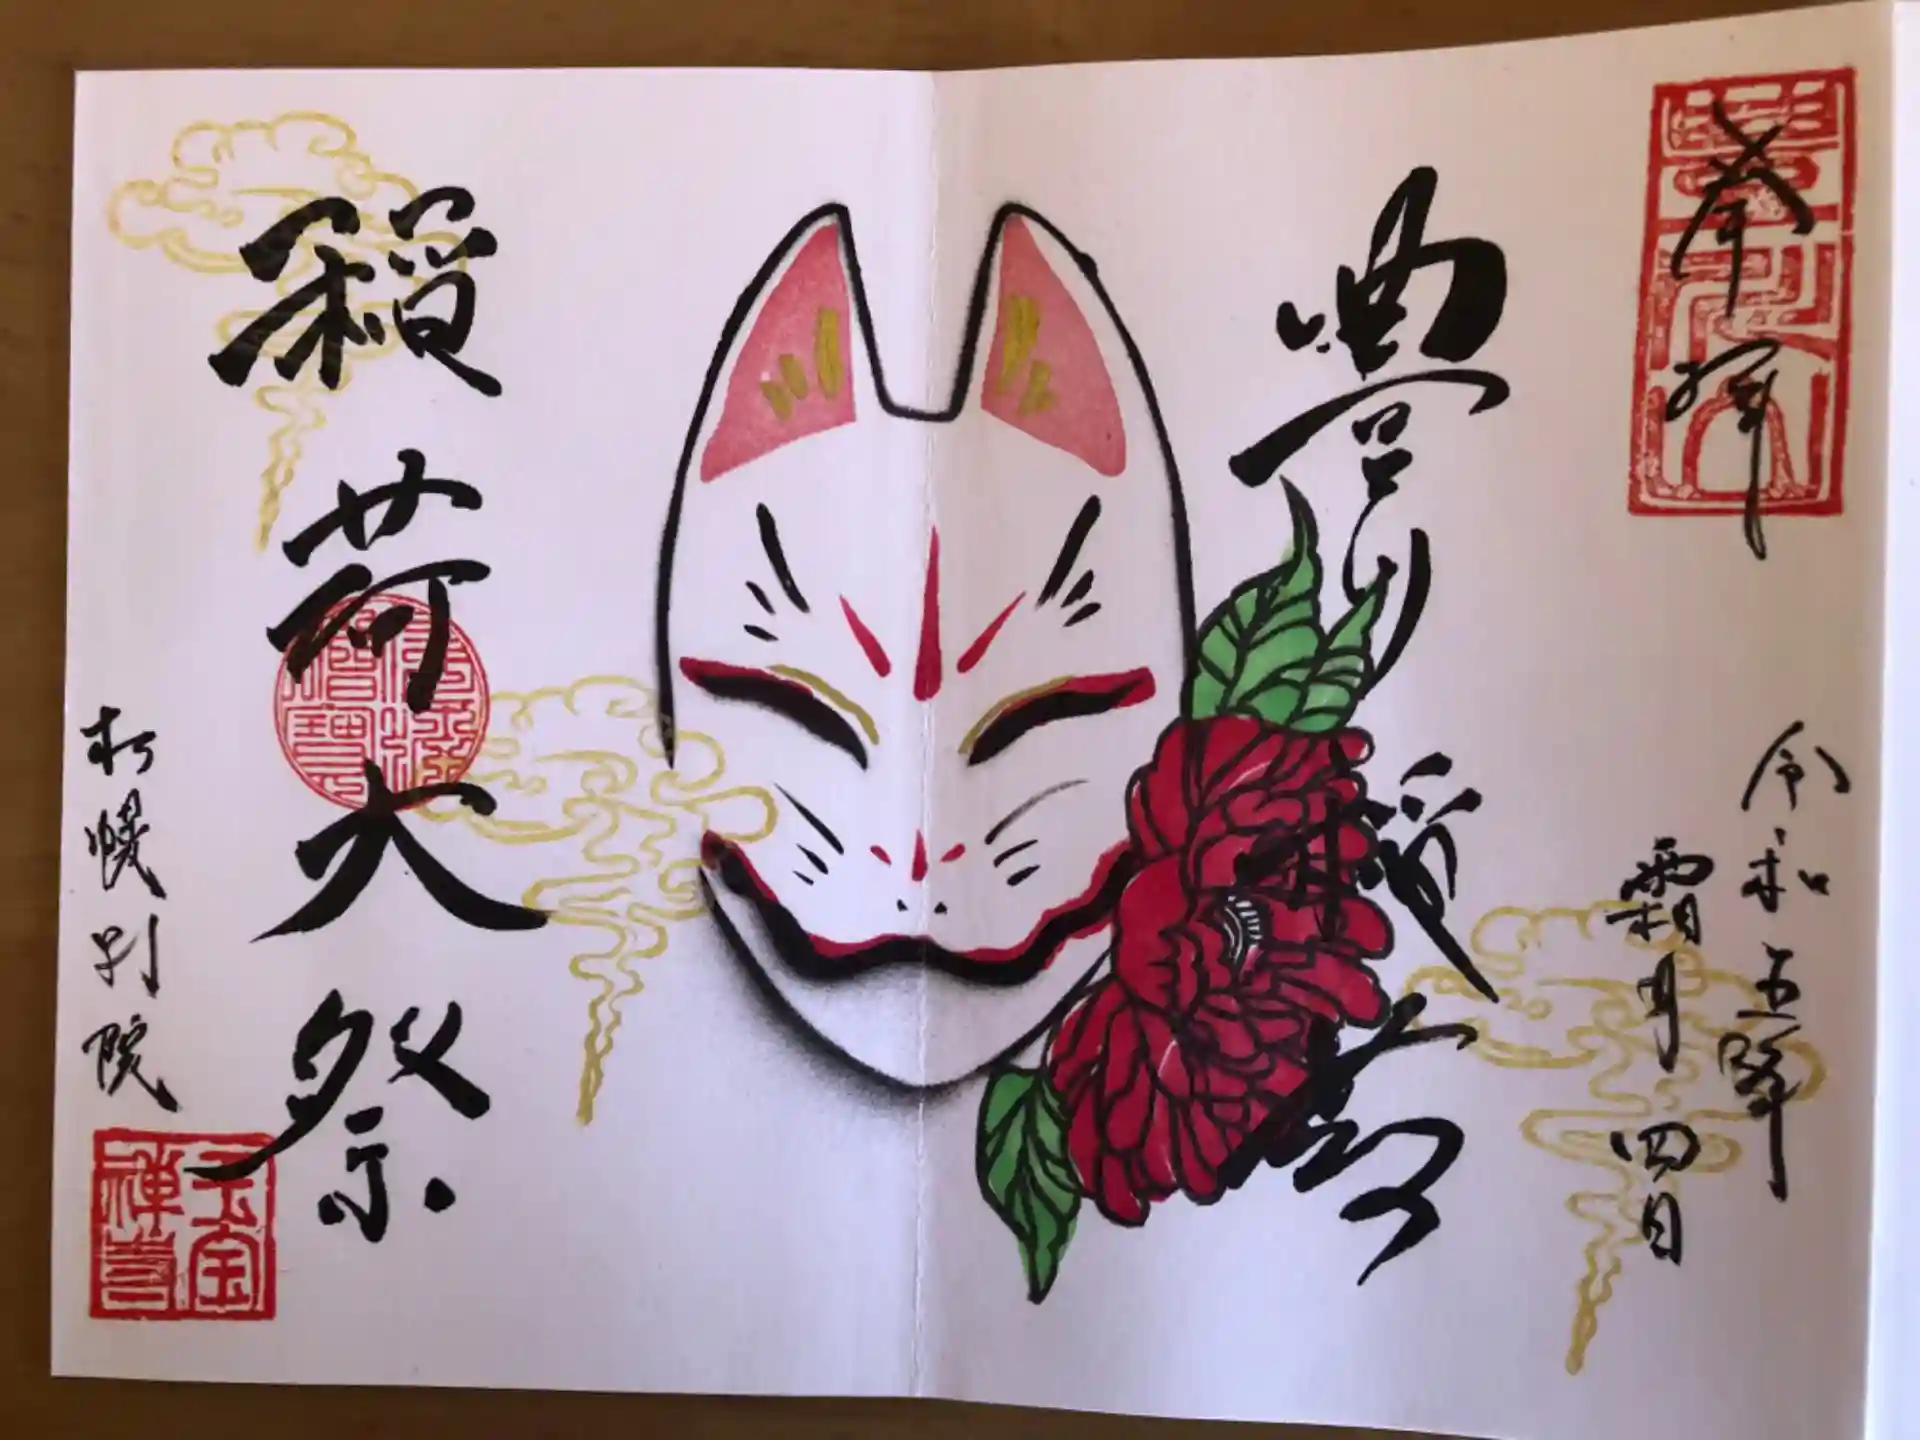 奉拝
令和五年
霜月四日
豊川
稲荷大祭
札幌別院
佛法僧寶
玉宝
禅寺